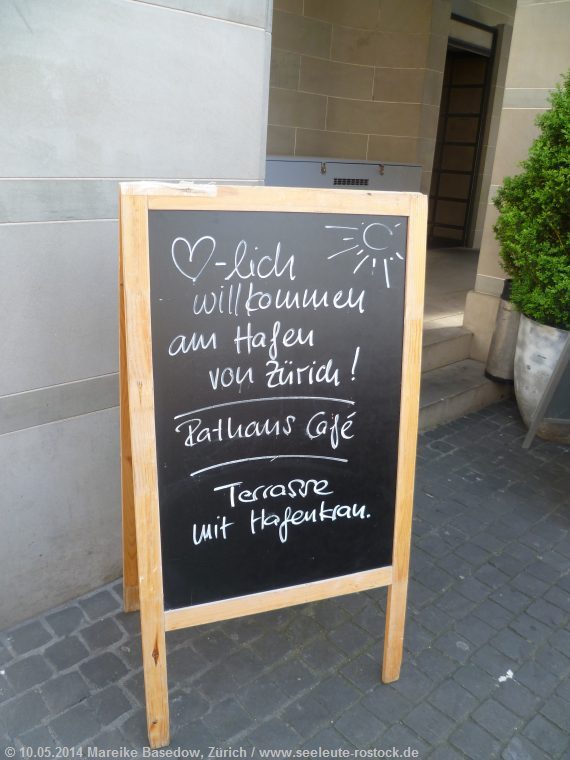 ♡-lich
willkommen
am Hafen
von Zürich!
Rathaus Café
Terrasse
mit Hafenkran.
© 10.05.2014 Mareike Basedow, Zürich / www.seeleute-rostock.de